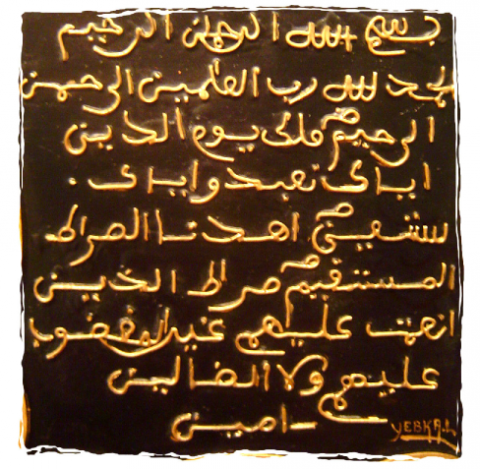 بسم الله الرحمن الرحيم
الحمد لله رب العلمين الرحمن
الرحيم ملك يوم الدين
اياك نعبد واياك
نستعين اهدنا الصراط
المستقيم صراط الذين
انعمت عليهم غير المغضوب
عليهم ولا الضالين
امين